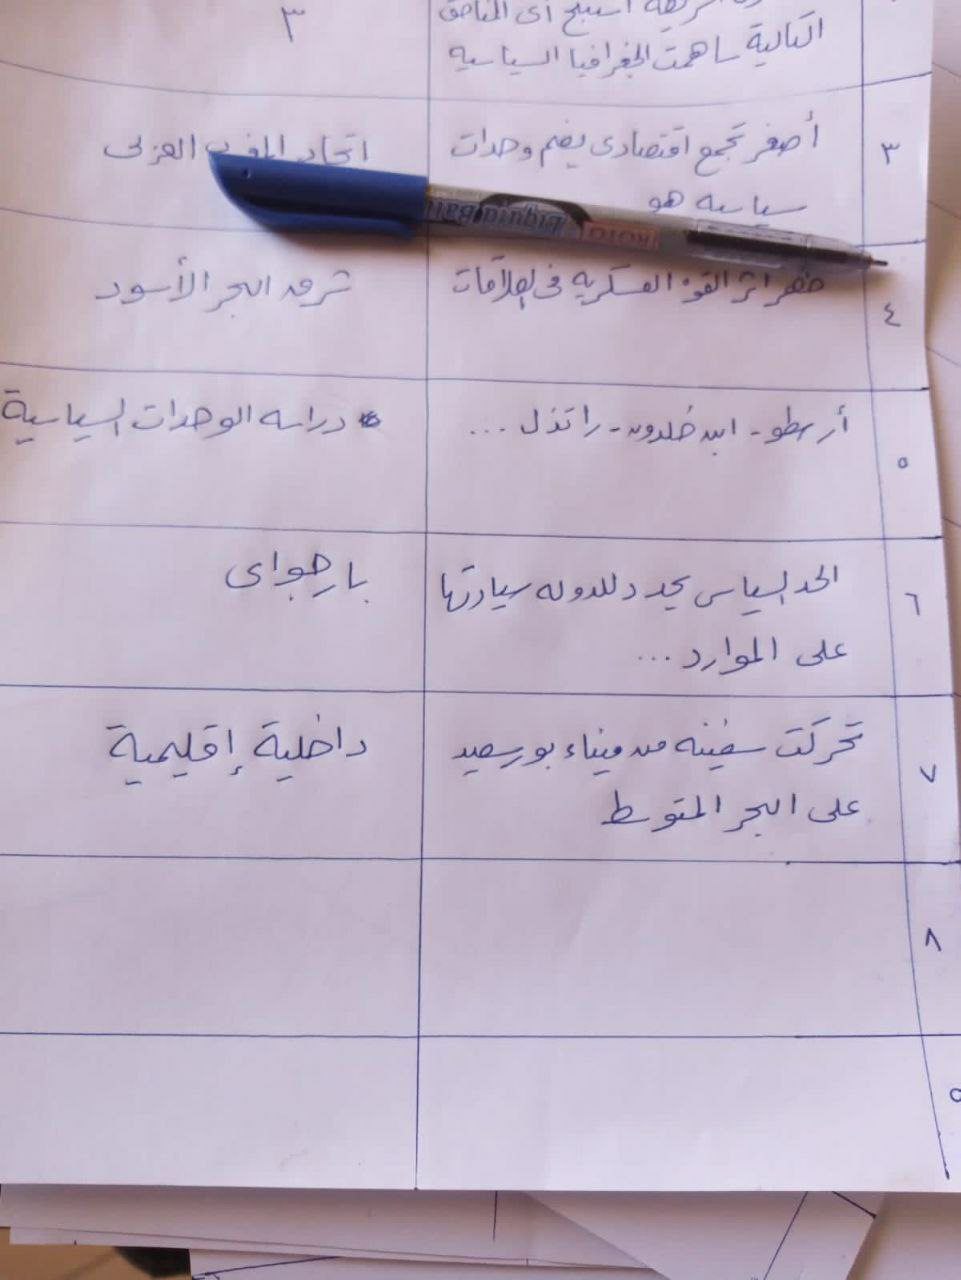 التالية ساهمت الجغرافيا السياسيه
٣
٣
أصغر تجمع اقتصادى يضم وحدات
سياسيه هو
اتحاد المغرب العربى
٤
ظهر اثر القوه العسكريه فى العلاقات
شرق البحر الأسود
٥
أرسطو - ابن خلدون - راتزل ...
دراسه الوحدات السياسية
٦
الحد السياسى يحدد للدوله سيادتها
على الموارد ...
بارجواى
٧
تحركت سفينه من ميناء بورسعيد
على البحر المتوسط
داخلية إقليمية
٨
ROTO
Liquid Ball